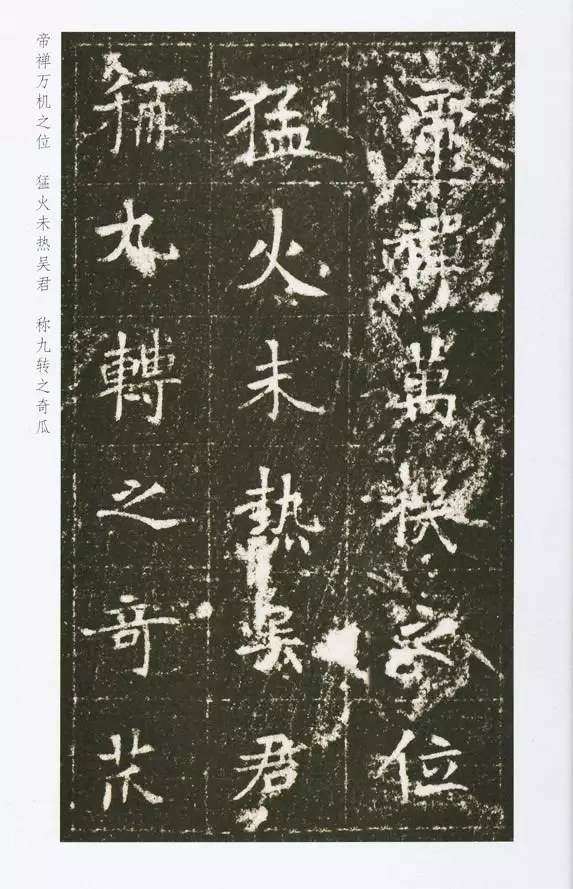 帝禪萬機之位
猛火未熱吳君
稱九轉之奇苽
帝禅万机之位 猛火未热吴君 称九转之奇瓜